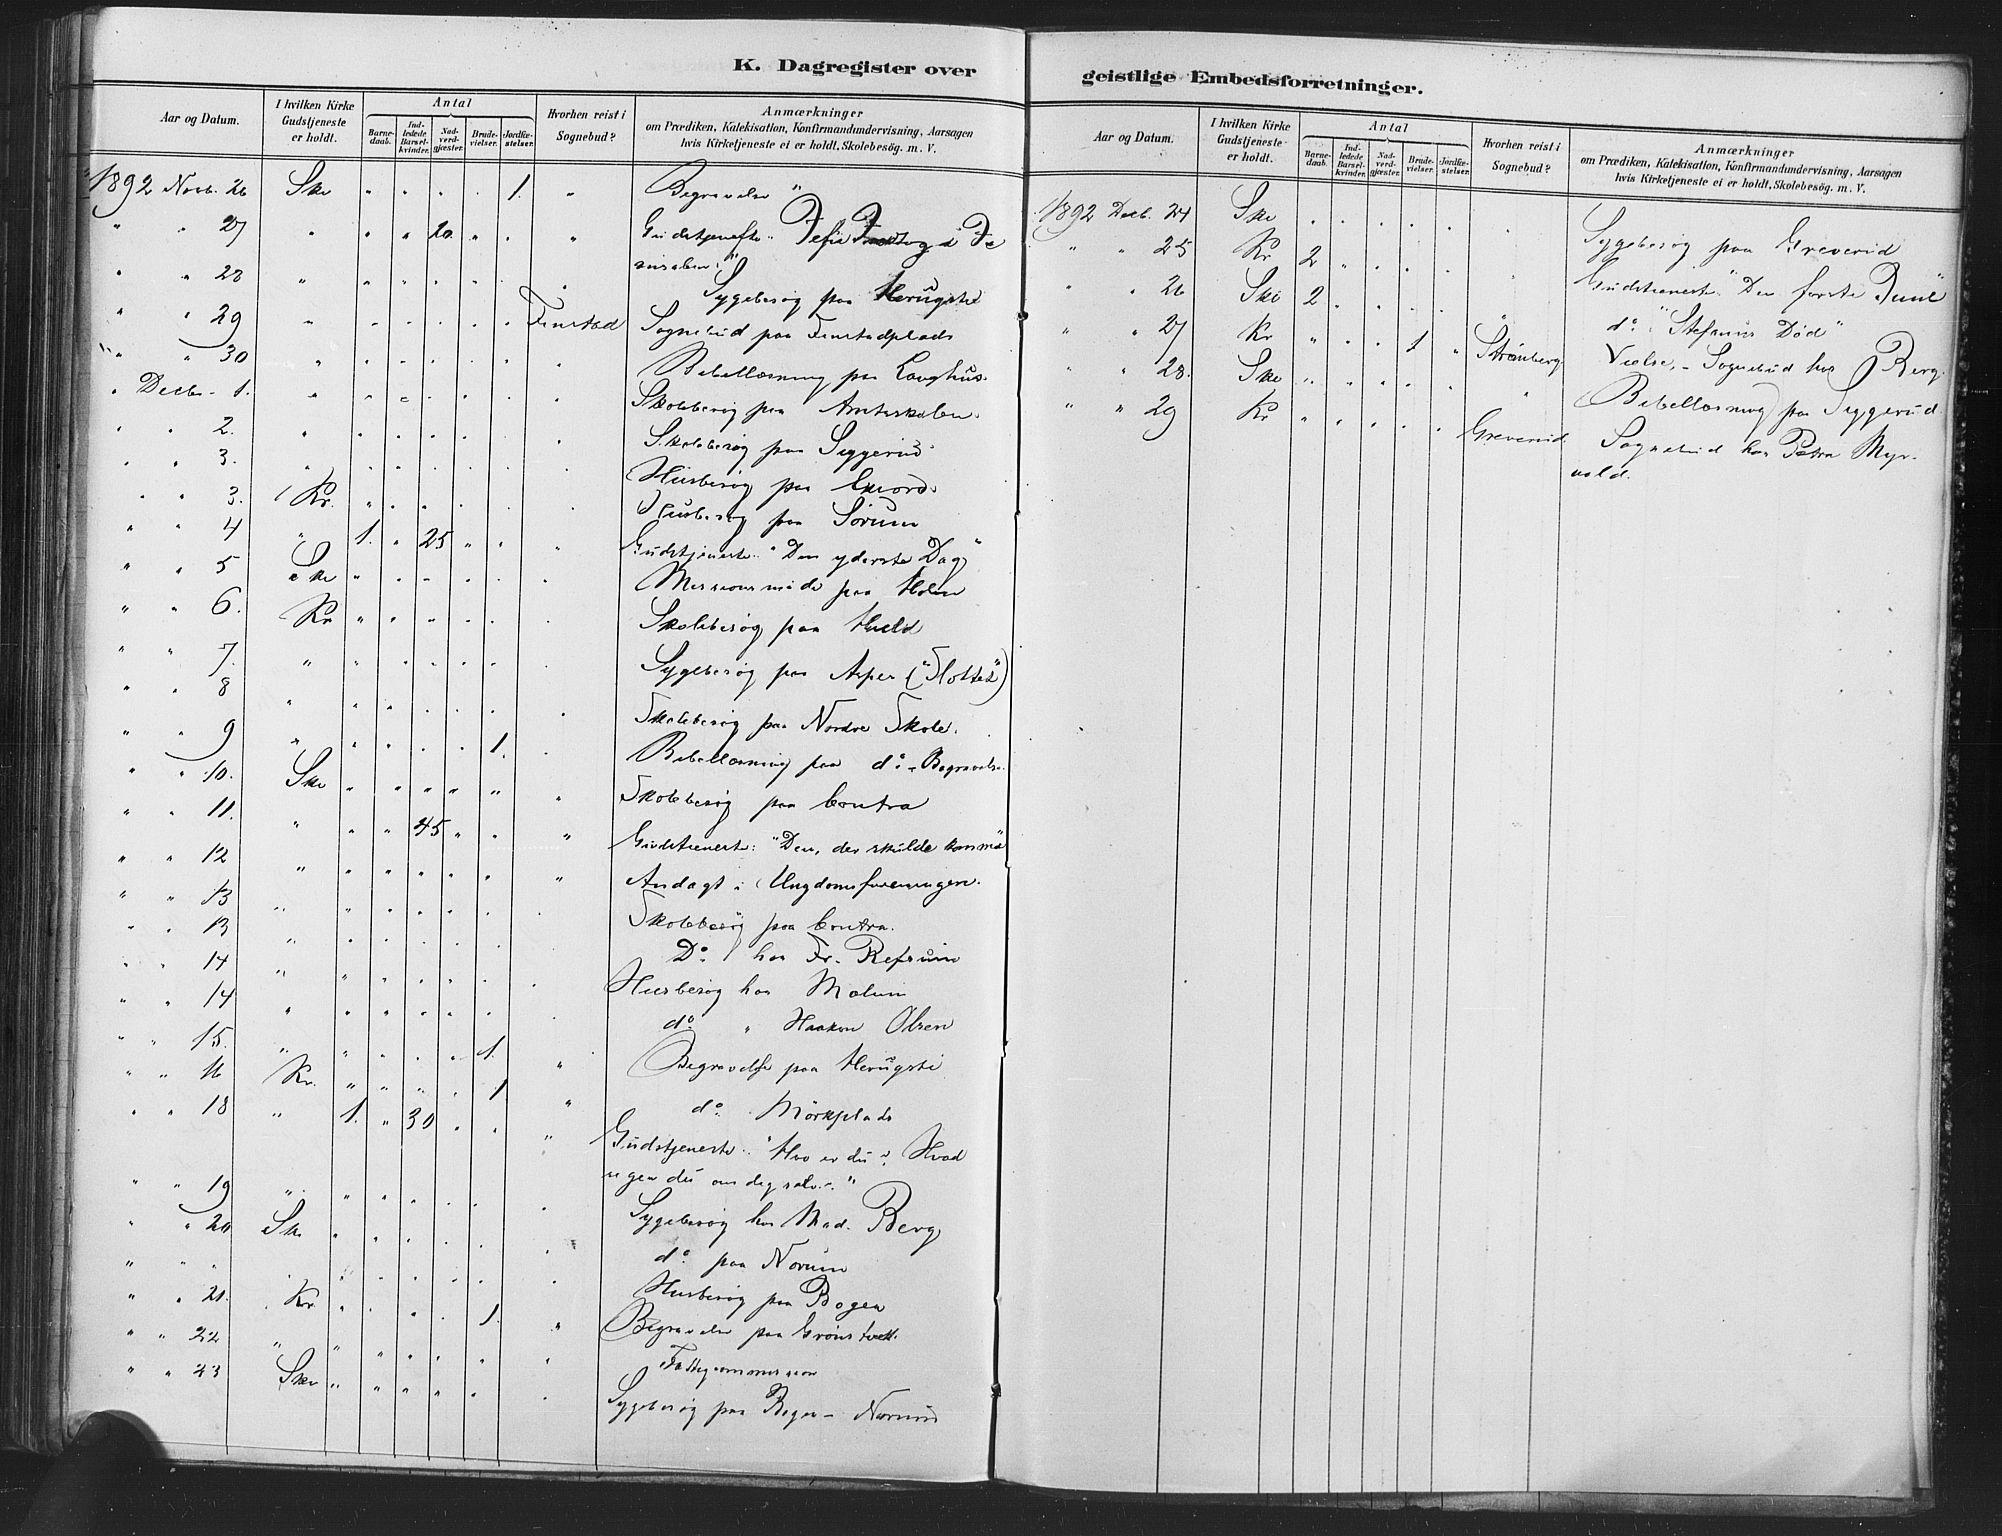 K. Dagregister over
Aar og Datum.
I hvilken Kirke Gudstjeneste er holdt.
Antal
Barnedaab.
Indledede Barselkvinder.
Nadverdgjæster.
Brudevielser.
Jordfæstelser.
Hvorhen reist i Sognebud?
Anmærkninger
om Prædiken, Katekisation, Konfirmandundervisning, Aarsagen
hvis Kirketjeneste ei er holdt, Skolebesög. m. V.
1892 Novb. 26 Ske " " " " 1. " Begravelse
" " 27 " " " 20 " " " Gudstjeneste: "Jesu
" " 28 " " " " " " " Sygebesøg paa Haugste
" " 29 " " " " " " Finstad Sognebud paa Finstadplads
" " 30 " " " " " " " Bibellæsning paa Langhus.
" Decbr. 1. " " " " " " " Skolebesøg paa Amtsskolen.
" " 2. " " " " " " " Skolebesøg paa Siggerud.
" " 3. " " " " " " " Husbesøg paa
" " 3. Kr. " " " " " " Husbesøg paa Sørum
" " 4 " 1. " 25 " " " Gudstjeneste: "Den yderste Dag"
" " 5 Ske " " " " " " Missionsmøde paa Holm
" " 6. Kr " " " " " " Skolebesøg paa
" " 7. " " " " " " " Sygebesøg paa Asper ("Slottet")
" " 8 " " " " " " " Skolebesøg paa Nordre Skole.
" " 9 " " " " " 1. " Bibellæsning paa do. - Begravelse.
" " 10. Ske " " " " " " Skolebesøg paa Contra
" " 11. " " " 45 " " " Gudstjeneste: "Den, der skulde komme"
" " 12 " " " " " " " Andagt i Ungdomsforeningen.
" " 13 " " " " " " " Skolebesøg paa Contra.
" " 13 " " " " " " " Do. hos Fr. Refsum
" " 14 " " " " " " " Husbesøg hos
" " 14 " " " " " " " do. " Haakon Olsen
" " 15. " " " " " 1. " Begravelse paa Haugste
" " 16 Kr. " " " " 1 " do. Mörkplads
" " 18 " 1. " 30 " " " Gudstjeneste: "Hvo er du? Hvad
siger du om dig selv?"
" " 19 " " " " " " " Sygebesøg hos Mad. Berg
" " 20 Ske " " " " " " do. paa Norum
" " " " " " " " " " Husbesøg paa Bøgen
" " 21. Kr. " " " " 1. " Begravelse paa
" " 22 " " " " " " " Fattigcommission
" " 23 Ske " " " " " " Sygebesøg paa Norum
geistlige Embedsforretninger.
Aar og Datum.
I hvilken Kirke Gudstjeneste er holdt.
Antal
Barnedaab.
Indledede Barselkvinder.
Nadverdgjæster.
Brudevielser.
Jordfæstelser.
Hvorhen reist i Sognebud?
Anmærkninger
om Prædiken, Katekisation, Konfirmandundervisning, Aarsagen
hvis Kirketjeneste ei er holdt, Skolebesög. m. V.
1892 Decb. 24 Ske " " " " " " Sygebesøg paa Greverud
" " 25 Kr 2 " " " " " Gudstjeneste "Den første Juul"
" " 26 Ske 2 " " " " " do. "Stefanus Død"
" " 27 Kr " " " 1 " Strømberg Vielse, - Sognebud hos Berg.
" " 28. Ske " " " " " " Bibellæsning paa Siggerud
" " 29 Kr " " " " " Greverud. Sognebud hos Petra Myr-
vold.